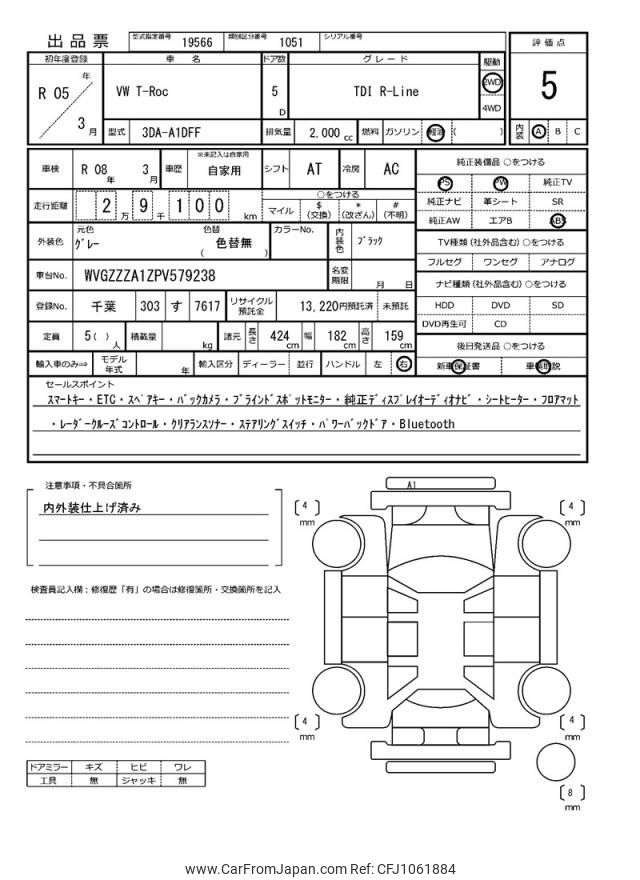 出品票 型式指定番号 19566 類別区分番号 1051 シリアル番号
初年度登録 車名 ドア数 グレード 駆動 評価点
R 05 年 3 月 VW T-Roc 5 D TDI R-Line 2WD 4WD 5
型式 3DA-A1DFF 排気量 2,000 cc 燃料 ガソリン 軽油 ( ) 内装 A B C
車検 R 08 年 3 月 車歴 ※未記入は自家用 自家用 シフト AT 冷房 AC 純正装備品 ○をつける
PS PW 純正TV
走行距離 2 万 9 千 1 0 0 km ○をつける
マイル $(交換) *(改ざん) #(不明)
純正ナビ 革シート SR
純正AW エアB ABS
外装色 元色 グレー 色替 色替無 ( ) カラーNo. 内装色 ブラック
TV種類 (社外品含む) ○をつける
フルセグ ワンセグ アナログ
車台No. WVGZZZA1ZPV579238 名変期限 月 日
ナビ種類 (社外品含む) ○をつける
登録No. 千葉 303 す 7617 リサイクル預託金 13,220円預託済 未預託
HDD DVD SD
DVD再生可 CD
定員 5( ) 人 積載量 kg 諸元 長さ 424 cm 幅 182 cm 高さ 159 cm
後日発送品 ○をつける
輸入車のみ⇒ モデル年式 年 輸入区分 ディーラー 並行 ハンドル 左 右
新車保証書 車輌取説
セールスポイント
スマートキー・ETC・スペアキー・バックカメラ・ブラインドスポットモニター・純正ディスプレイオーディオナビ・シートヒーター・フロアマット
・レーダークルーズコントロール・クリアランスソナー・ステアリングスイッチ・パワーバックドア・Bluetooth
注意事項・不具合箇所
内外装仕上げ済み
検査員記入欄：修復歴「有」の場合は修復箇所・交換箇所を記入
A1
[ 4 ] mm
[ 4 ] mm
[ 4 ] mm
[ 4 ] mm
[ 8 ] mm
ドアミラー キズ ヒビ ワレ
工具 無 ジャッキ 無
www.CarFromJapan.com Ref: CFJ1061884